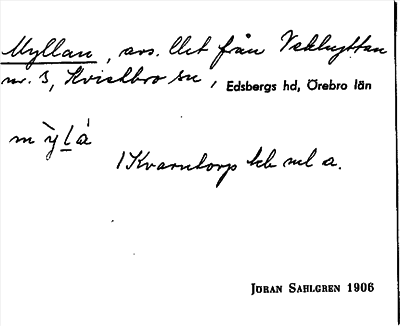 Myllan, avs. Det från Vekhyttan
nr. 3, Kvistbro sn, Edsbergs hd, Örebro län
m y̍l a
1 Kvarntorp tcb ml a.
JÖRAN SAHLGREN 1906